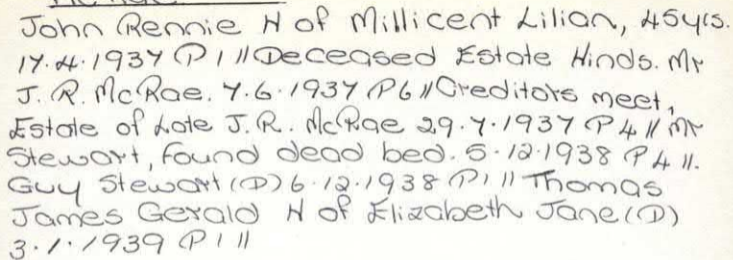 John Rennie H of Millicent Lilian, 45yrs.
17.4.1937 P1 // Deceased Estate Hinds. Mr
J. R. McRae. 7.6.1937 P6 // Creditors meet,
Estate of Late J. R. McRae 29.7.1937 P4 // Mr
Stewart, found dead bed. 5.12.1938 P4 //.
Guy Stewart (D) 6.12.1938 P1 // Thomas
James Gerald H of Elizabeth Jane (D)
3.1.1939 P1 //